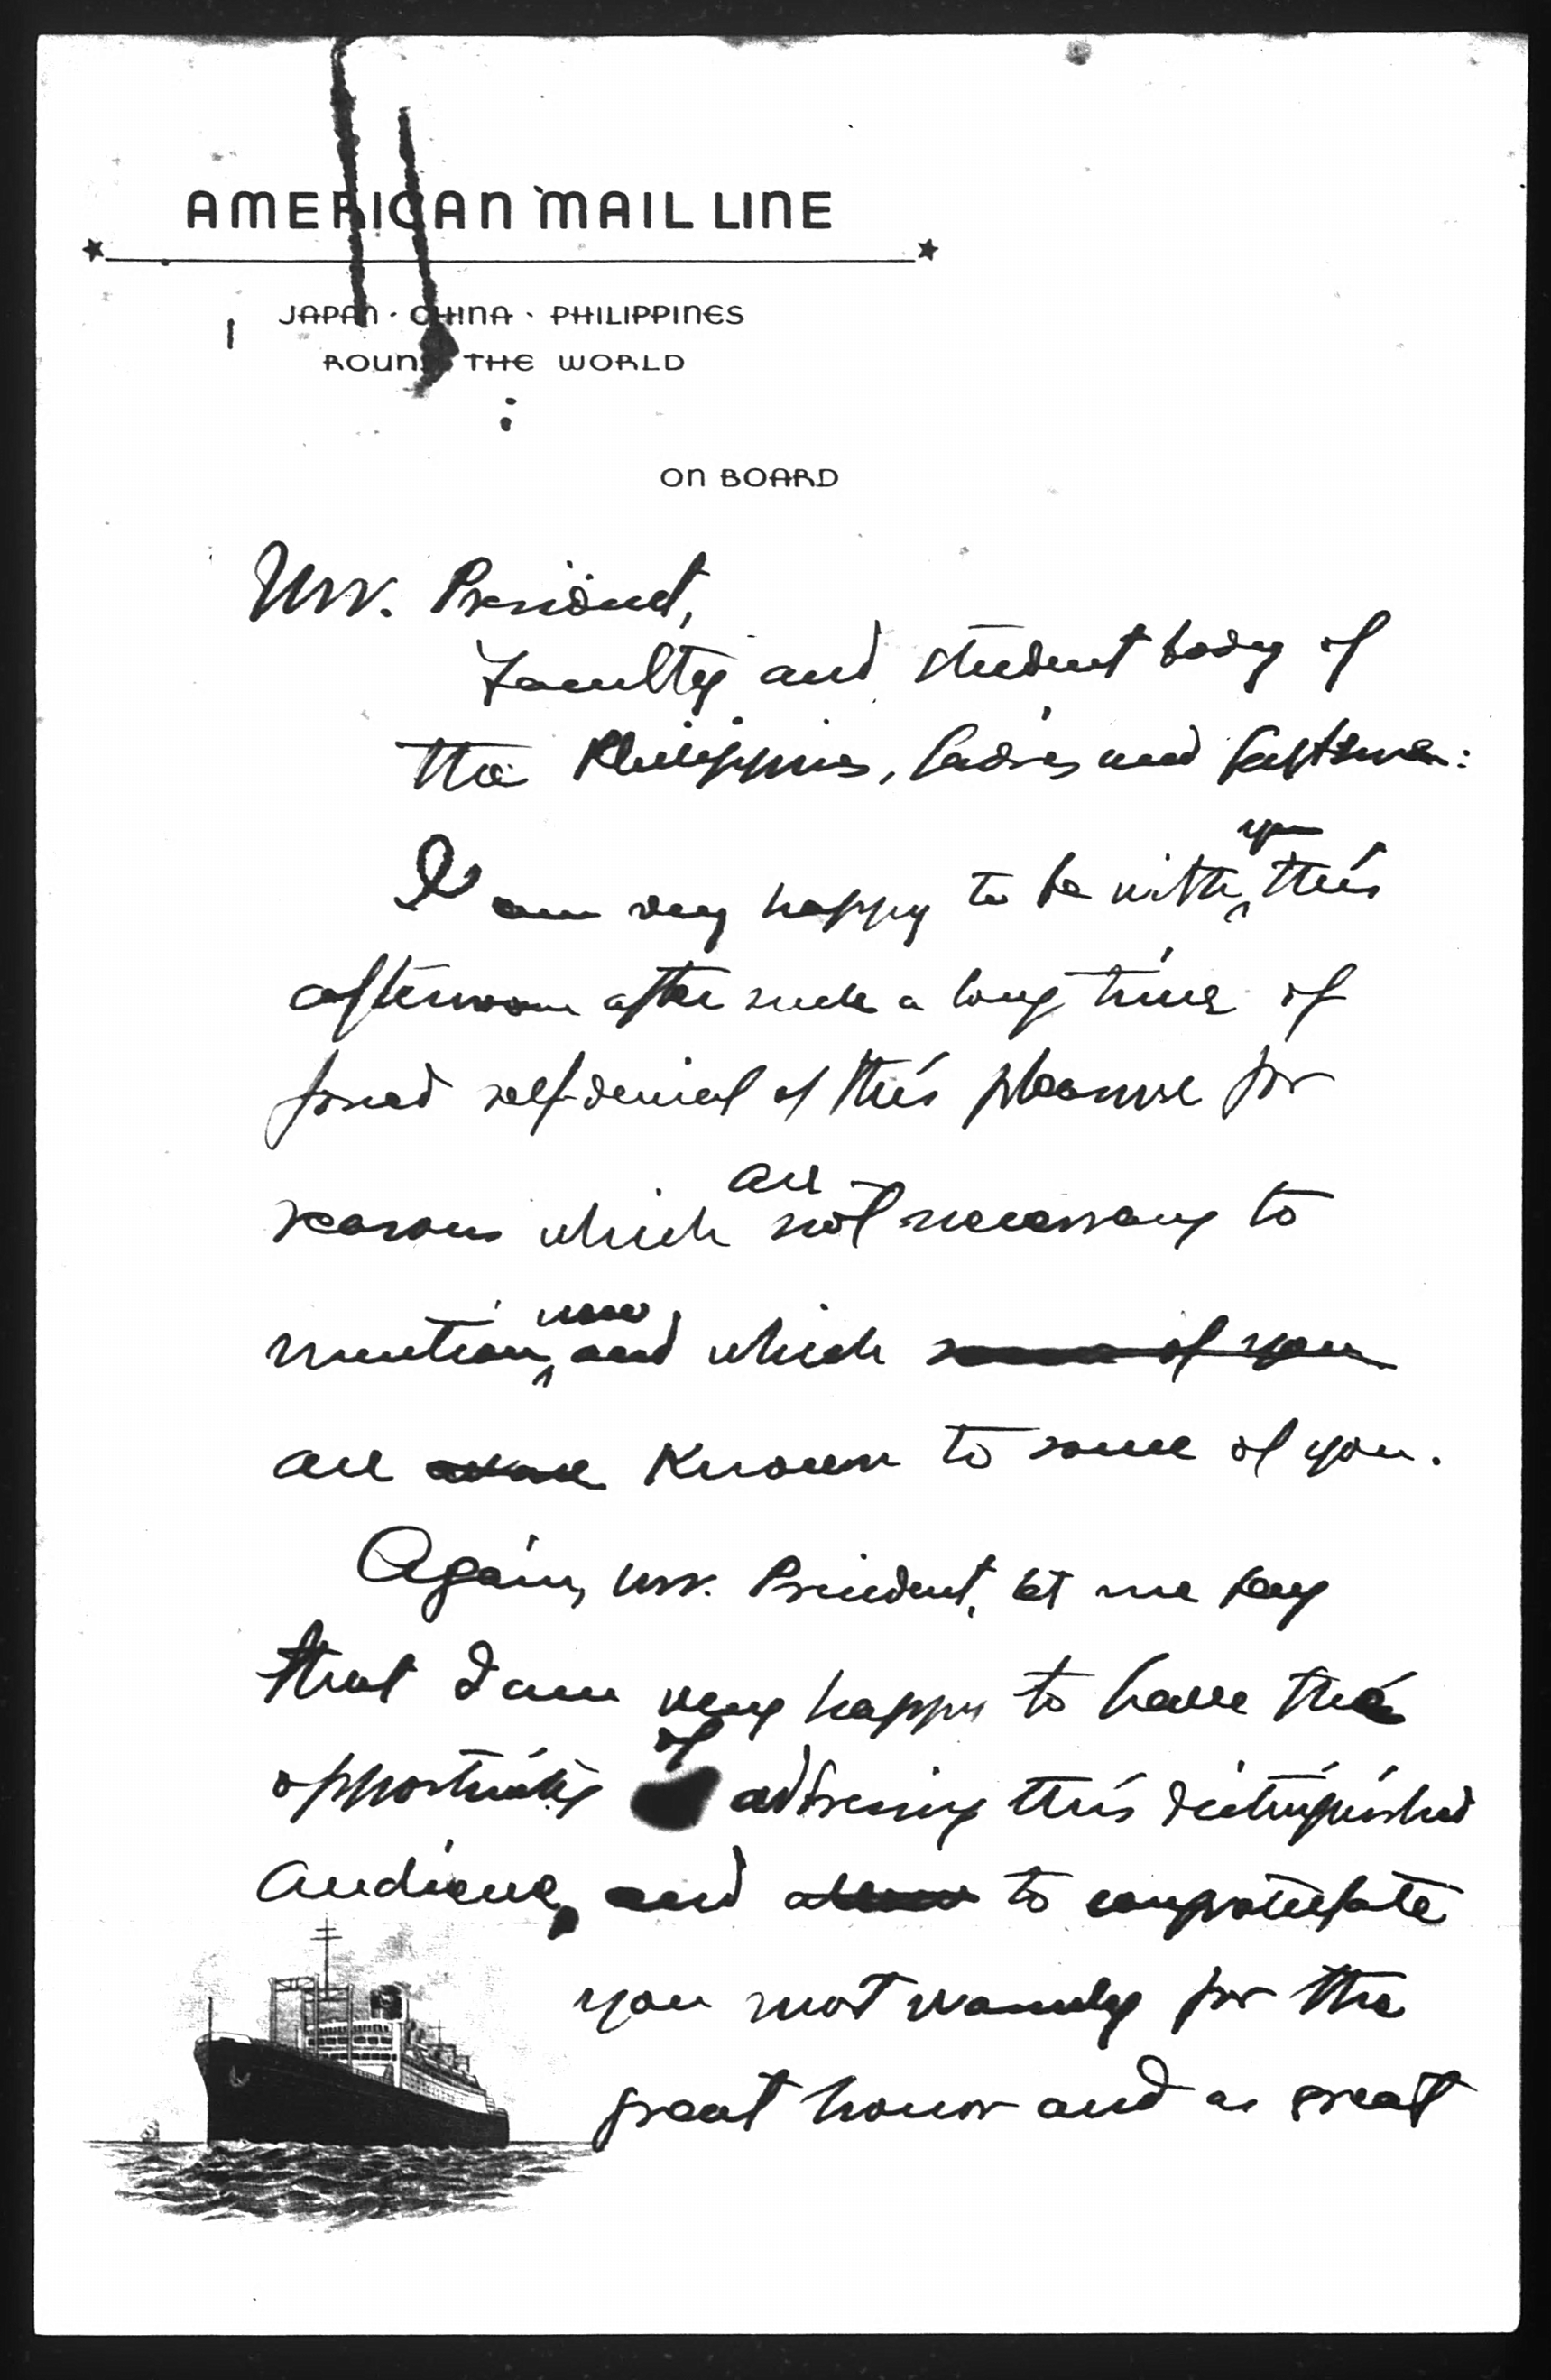 AMERICAN MAIL LINE
JAPAN · CHINA · PHILIPPINES
ROUND THE WORLD
ON BOARD
Mr. President,
Faculty and student body of
the Philippines, ladies and gentlemen:
I am very happy to be with you this
afternoon after such a long time of
forced self-denial of this pleasure for
reasons which are not necessary to
mention now, and which some of you
are known to some of you.
Again, Mr. President, let me say
that I am very happy to have the
opportunity of addressing this distinguished
audience, and to congratulate
you most warmly for the
great honor and as great